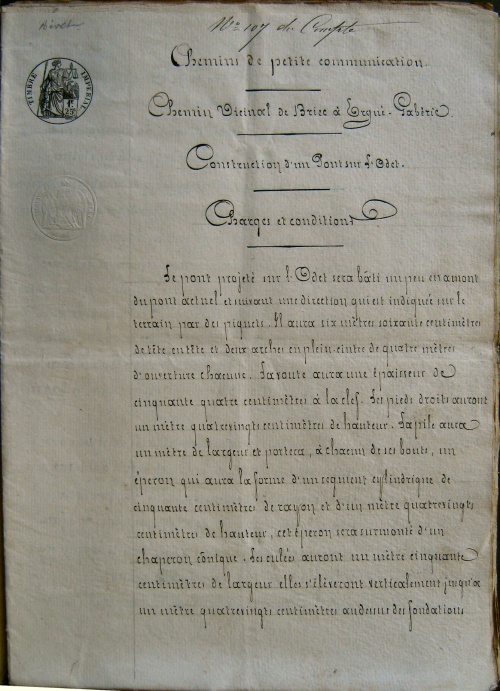 Nº 107 du Compte
TIMBRE IMPERIAL
Chemins de petite communication.
Chemin Vicinal de Briec à Ergué-Gabéric
Construction d'un Pont sur l'Odet.
Charges et conditions
Le pont projeté sur l'Odet sera bâti un peu en amont
du pont actuel et suivant une direction qui est indiquée sur le
terrain par des piquets. Il aura six mètres soixante centimètres
de tête en tête et deux arches en plein-cintre de quatre mètres
d'ouverture chacune. La voute aura une épaisseur de
cinquante quatre centimètres à la clef. Les pieds droits auront
un mètre quatrevingts centimètres de hauteur. La pile aura
un mètre de largeur et portera, à chacun de ses bouts, un
éperon qui aura la forme d'un segment cylindrique de
cinquante centimètres de rayon et d'un mètre quatrevingts
centimètres de hauteur, cet éperon sera surmonté d'un
chaperon cônique. Les culées auront un mètre cinquante
centimètres de largeur elles s'élèveront verticalement jusqu'à
un mètre quatrevingts centimètres audessus des fondations